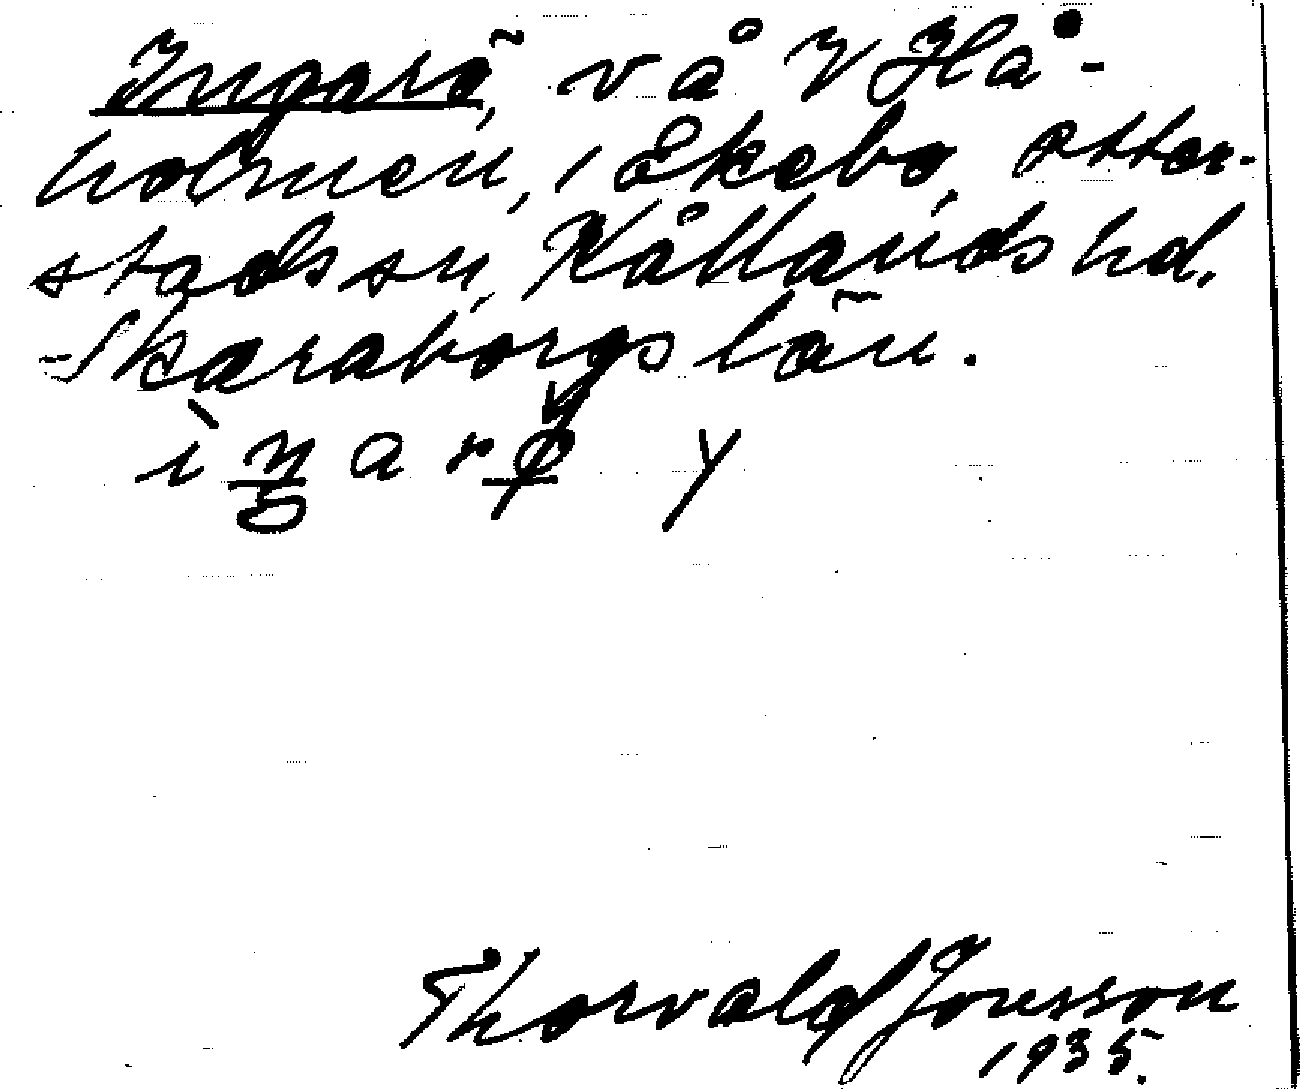 Ingarö, v å V Hå-
holmen, i Ekebo, Otter-
stads sn, Kållands hd,
Skaraborgs län.
Thorvald Jonsson
1935.